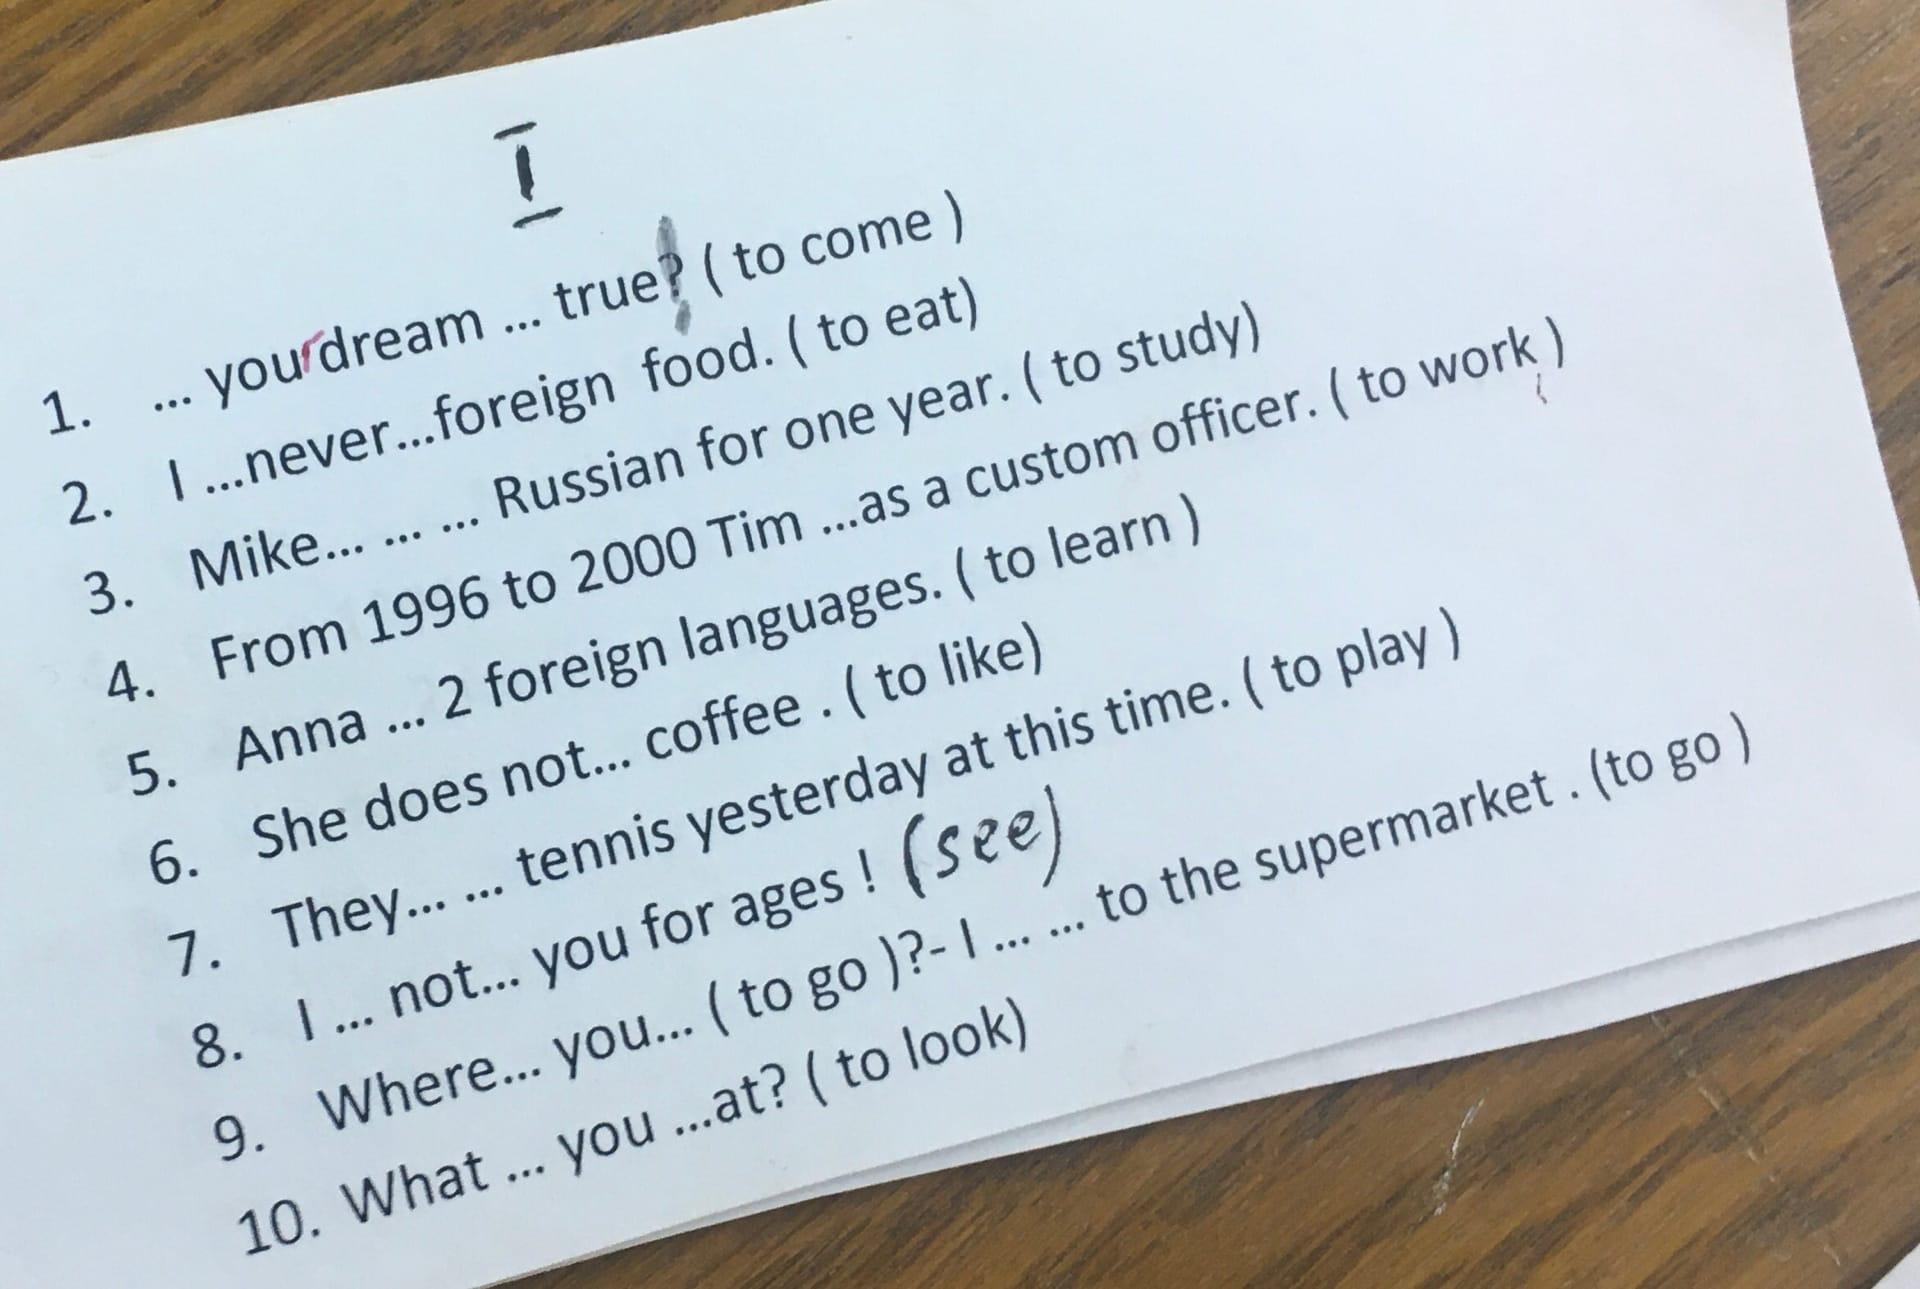 I
1. ... your dream ... true? ( to come )
2. I ...never...foreign food. ( to eat)
3. Mike... ... ... Russian for one year. ( to study)
4. From 1996 to 2000 Tim ...as a custom officer. ( to work )
5. Anna ... 2 foreign languages. ( to learn )
6. She does not... coffee . ( to like)
7. They... ... tennis yesterday at this time. ( to play )
8. I ... not... you for ages ! (see)
9. Where... you... ( to go )?- I ... ... to the supermarket . (to go )
10. What ... you ...at? ( to look)